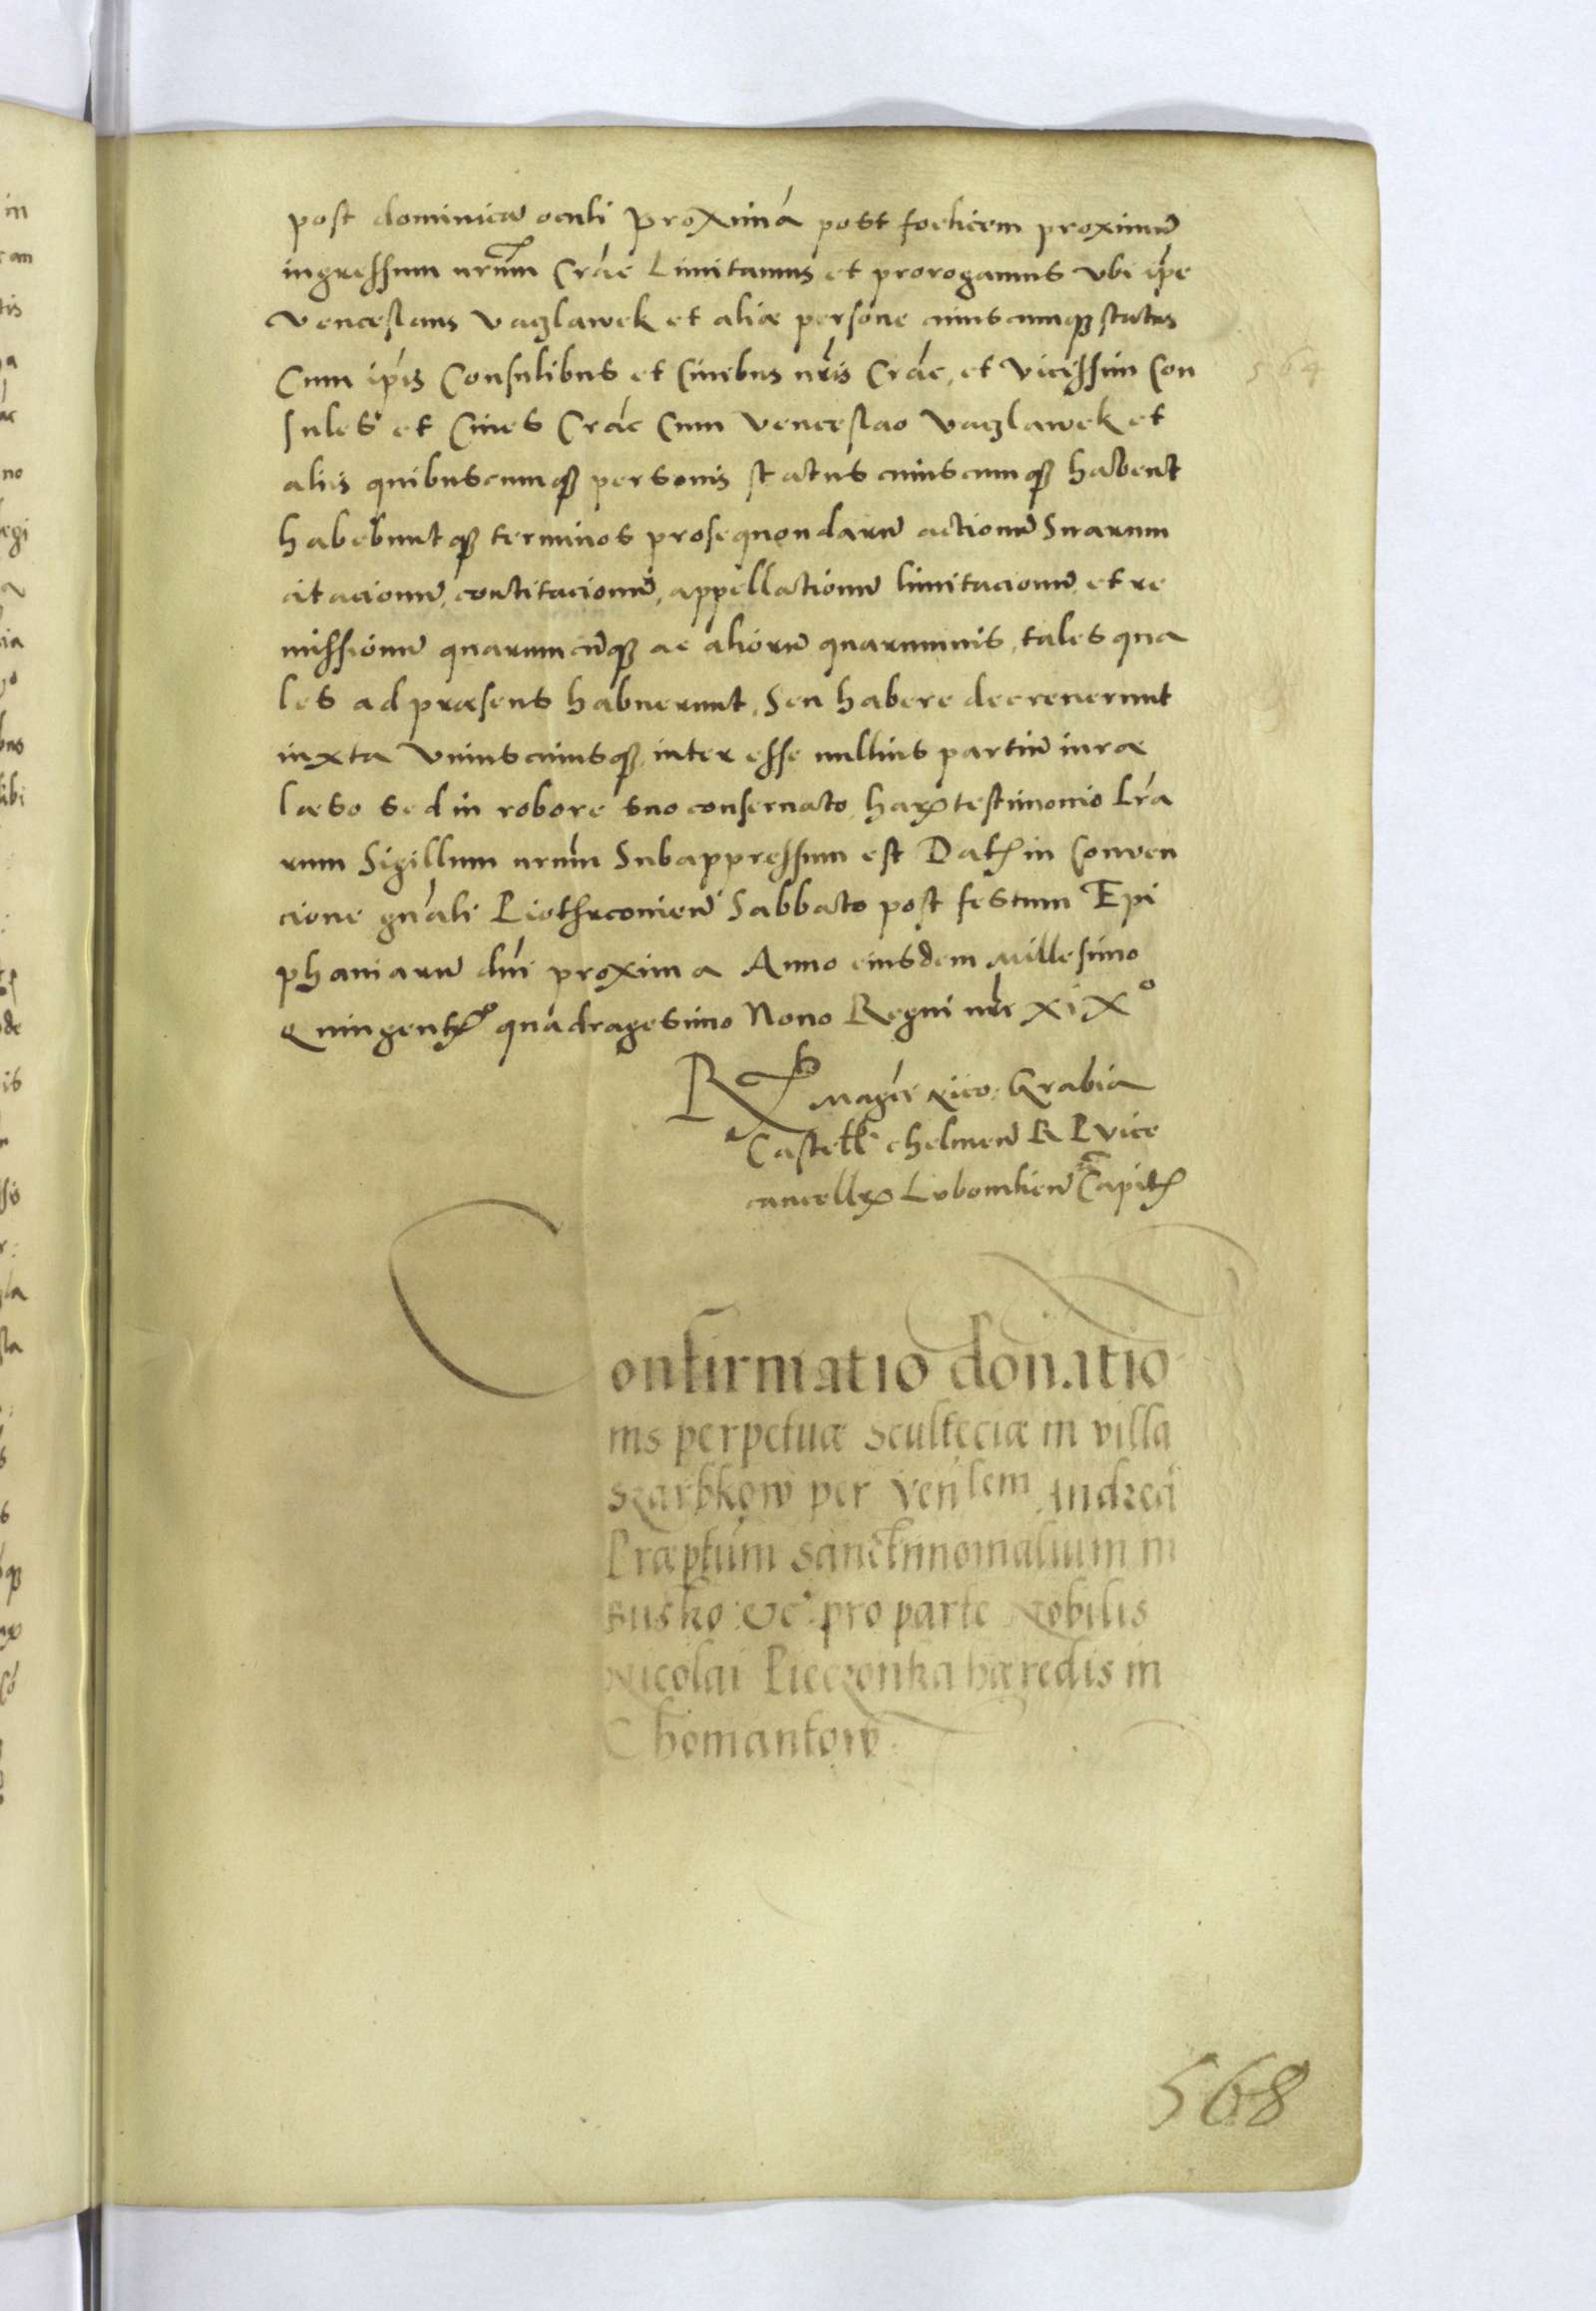 post dominicã oculi proximá post foelicem proximũ
ingressum nr̃um Crac̃ Limitamus et prorogamus vbi ip̃e
Venceslaus Vaczlawek et aliæ persone cuiuscumq̃ status
Cum ip̃is Consulibus et Ciuibus nr̃is Crac̃, et vicissim Con
sules et Ciues Crac̃ Cum Venceslao Vaczlawek et
aliis quibuscumq̃ personis status cuiuscumq̃ habent
habebuntq̃ terminos prosequendarũ actionũ Suarum
citacionũ, contitacionũ, appellationũ limitacionũ, et re
missionũ quarumcũq̃ ac aliorũ quarumuis, tales qua
les ad præsens habuerunt, Seu habere decreuerunt
iuxta vniuscuiusq̃ interesse nullius partiũ iuræ
læso sed in robore suo conseruato, harꝝ testimonio Lr̃a
rum Sigillum nr̃um Subappressum est Datꝭ in Conven
cione gn̄ali Piothrconien̄ Sabbato post festum Epi
phaniarũ dn̄i proxima Anno eiusdem Millesimo
Quingentꝭº quadragesimo Nono Regni nr̃i XiXº
Rᵗᵒ Magci Nico: Grabia
Castell̃ chelmen̄ R P vice
cancellꝝ Lubomlien̄ Capitꝭ
564
Confirmatio donatio
nis perpetuæ Sculteciæ in villa
Skarbkow per Ven̄lem Andreã
Præptum Sanctimonialium in
Busko: &c. pro parte Nobilis
Nicolai Pieczonka hæredis in
Chomantow.
568